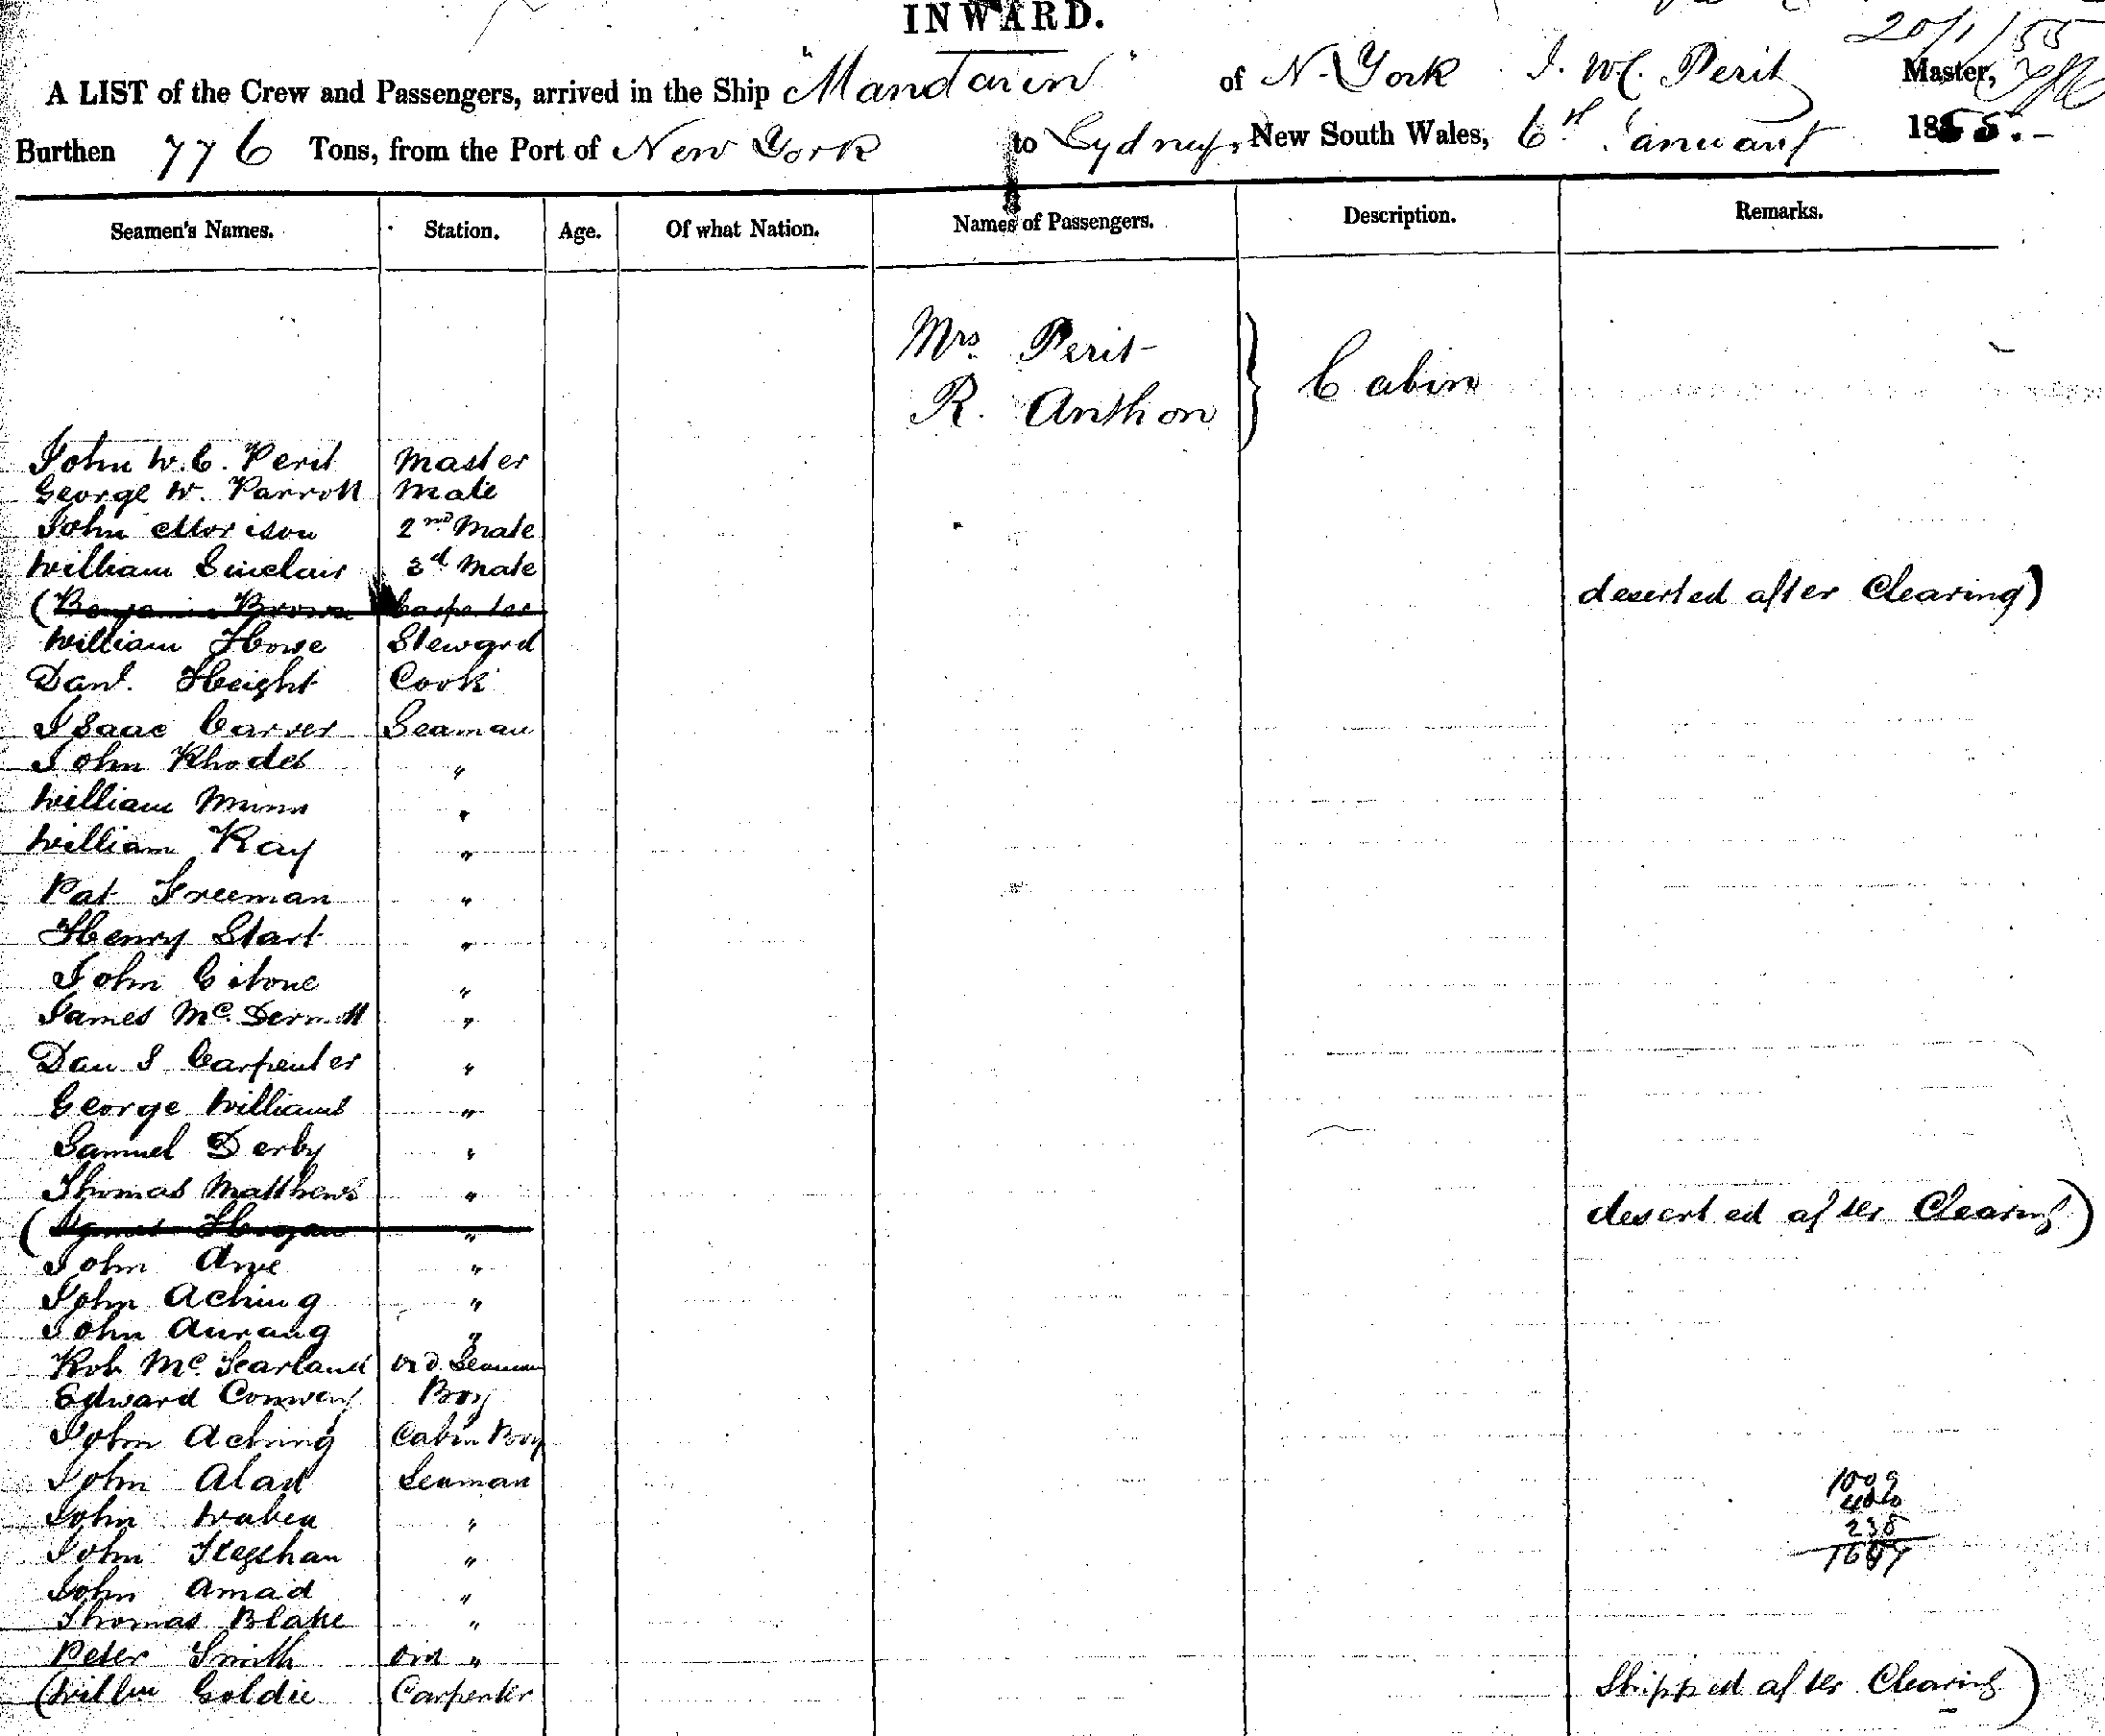 INWARD.
20/1/55
A LIST of the Crew and Passengers, arrived in the Ship "Mandarin" of N. York J. W. C. Perit Master,
Burthen 776 Tons, from the Port of New York to Sydney, New South Wales, 6th January 1855.
Seamen's Names. Station. Age. Of what Nation. Names of Passengers. Description. Remarks.
Mrs. Perit
R. Anthon } Cabin
John W. C. Perit Master
George W. Parrott Mate
John Morison 2nd Mate
William Sinclair 3d Mate
(Benjamin Brown Carpenter deserted after Clearing)
William Howe Steward
Danl. Height Cook
Isaac Carver Seaman
John Rhodes "
William Munn "
William Kay "
Pat Freeman "
Henry Start "
John Citone "
James McDermott "
Dan S Carpenter "
George Williams "
Samuel Derby "
Thomas Matthews "
(James Hogan " deserted after Clearing)
John Ane "
John Aching "
John Aurang "
Rob McFarland Ord. Seaman
Edward Conway Boy
John Aching Cabin Boy
John Alad Seaman
John "
John "
John Amad "
Thomas Blake "
Peter Smith Ord "
(Willm Goldie Carpenter Shipped after Clearing)
1009
238